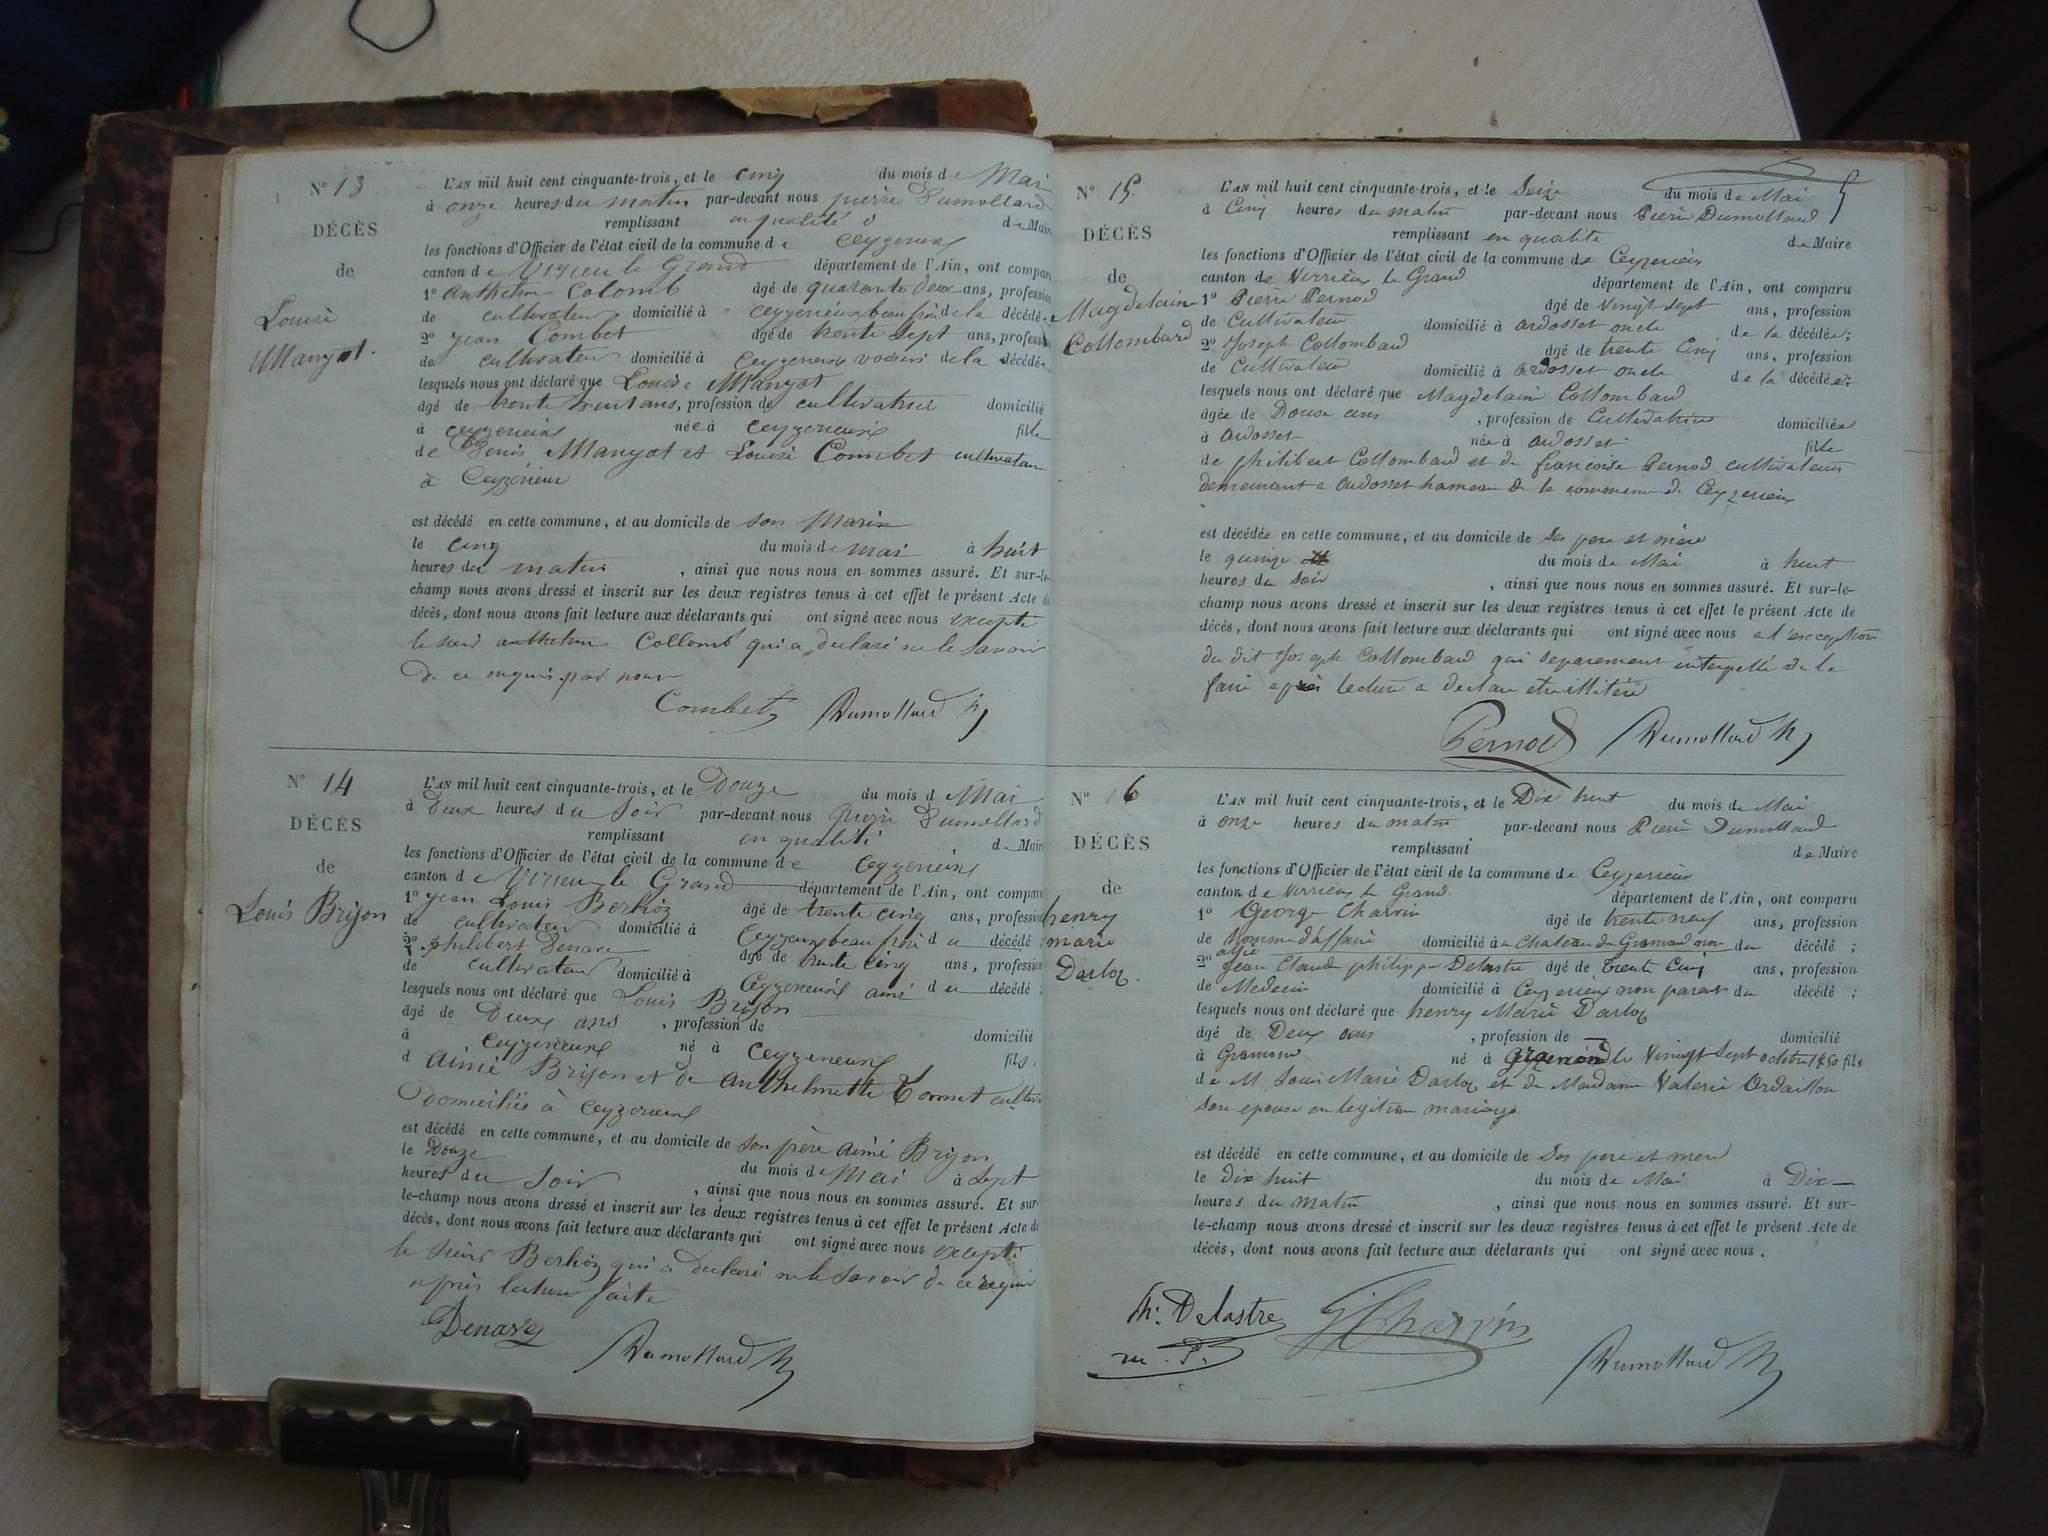 N° 13
DÉCÈS
de
Louise
Mangot.
L'AN mil huit cent cinquante-trois, et le cinq du mois de Mai
à onze heures du matin par-devant nous pierre Dumollard
remplissant en qualité de Maire
les fonctions d'Officier de l'état civil de la commune de Ceyzerieux
canton de Virieu le Grand département de l'Ain, ont comparu
1° anthelme Colomb âgé de quarante deux ans, profession
de cultivateur domicilié à ceyzerieux beau frère de la décédée
2° jean Combet âgé de trente sept ans, profession
de cultivateur domicilié à ceyzerieux voisin de la décédée
lesquels nous ont déclaré que Louise Mangot
âgé de trente huit ans, profession de cultivatrice domicilié
à ceyzerieux née à ceyzerieux fille
de Denis Mangot et Louise Combet cultivateur
à Ceyzérieux
est décédé en cette commune, et au domicile de son Marie
le cinq du mois de mai à huit
heures du matin, ainsi que nous nous en sommes assuré. Et sur-le-
champ nous avons dressé et inscrit sur les deux registres tenus à cet effet le présent Acte de
décès, dont nous avons fait lecture aux déclarants qui ont signé avec nous excepté
le sieur anthelme Collomb qui a déclaré ne le savoir
de ce requis par nous
Combet Dumollard
N° 14
DÉCÈS
de
Louis Brijon
L'AN mil huit cent cinquante-trois, et le Douze du mois d Mai
à Deux heures du Soir par-devant nous pierre Dumollard
remplissant en qualité de Maire
les fonctions d'Officier de l'état civil de la commune de Ceyzerieux
canton de Virieu le Grand département de l'Ain, ont comparu
1° jean Louis Berlioz âgé de trente cinq ans, profession
de cultivateur domicilié à Ceyzerieux beau frère du décédé
2° philibert Denare âgé de trente cinq ans, profession
de cultivateur domicilié à Ceyzerieux ami du décédé ;
lesquels nous ont déclaré que Louis Brijon
âgé de Deux ans, profession de domicilié
à ceyzerieux né à ceyzerieux fils.
d aimé Brijon et de anthelmette Connet
Domiciliés à ceyzerieux
est décédé en cette commune, et au domicile de son père aimé Brijon
le Douze du mois de Mai à sept
heures du Soir, ainsi que nous nous en sommes assuré. Et sur-
le-champ nous avons dressé et inscrit sur les deux registres tenus à cet effet le présent Acte de
décès, dont nous avons fait lecture aux déclarants qui ont signé avec nous excepté
le sieur Berlioz qui a declaré ne le savoir de ce requis
après lecture faite
Denare
Dumollard
5
N° 15
DÉCÈS
de
Magdelaine
Collombard
L'AN mil huit cent cinquante-trois, et le Seize du mois de Mai
à Cinq heures du matin par-devant nous Pierre Dumollard
remplissant en qualite de Maire
les fonctions d'Officier de l'état civil de la commune de Ceyzerieux
canton de Virrieux le Grand département de l'Ain, ont comparu
1° Pierre Pernod âgé de vingt sept ans, profession
de Cultivateur domicilié à ardosset oncle de la décédée;
2° Joseph Collombard âgé de trente Cinq ans, profession
de Cultivateur domicilié à ardosset oncle de la décédée;
lesquels nous ont déclaré que Magdelaine Collombard
âgée de Douze ans, profession de Cultivatrice domiciliée
à ardosset née à ardosset fille
de philibert Collombard et de françoise Pernod cultivateurs
demeurant a ardosset hameau de la commune de Ceyzerieux
est décédée en cette commune, et au domicile de Ses pere et mére
le quinze du mois de Mai à huit
heures du Soir, ainsi que nous nous en sommes assuré. Et sur-le-
champ nous avons dressé et inscrit sur les deux registres tenus à cet effet le présent Acte de
décès, dont nous avons fait lecture aux déclarants qui ont signé avec nous a l'exception
du dit Joseph Collombard qui separement interpellé de le
faire après lecture a declare etre illitéré
Pernod Dumollard
N° 16
DÉCÈS
de
henry
marie
Darloz.
L'AN mil huit cent cinquante-trois, et le Dix huit du mois de Mai
à onze heures du matin par-devant nous Pierre Dumollard
remplissant de Maire
les fonctions d'Officier de l'état civil de la commune de Ceyzerieux
canton de Virrieux le Grand. département de l'Ain, ont comparu
1° George Charvin âgé de trente neuf ans, profession
de homme d'affaire domicilié à a chateau de Gramond non du décédé ;
2° jean Claude philippe Delastre âgé de trente Cinq ans, profession
de Medecin domicilié à Ceyzerieux non parent du décédé ;
lesquels nous ont déclaré que henry Marie Darloz
âgé de Deux ans, profession de domicilié
à Gramond né à gramond le Vingt Sept octobre 1850 fils
de M Louis Marie Darloz et de Madame Valerie Ordaillon
son epouse en legitime mariage
est décédé en cette commune, et au domicile de Ses pere et mere
le Dix huit du mois de Mai à Dix
heures du Matin, ainsi que nous nous en sommes assuré. Et sur-
le-champ nous avons dressé et inscrit sur les deux registres tenus à cet effet le présent Acte de
décès, dont nous avons fait lecture aux déclarants qui ont signé avec nous.
Ph. Delastre G Charvin
m. P.
Dumollard